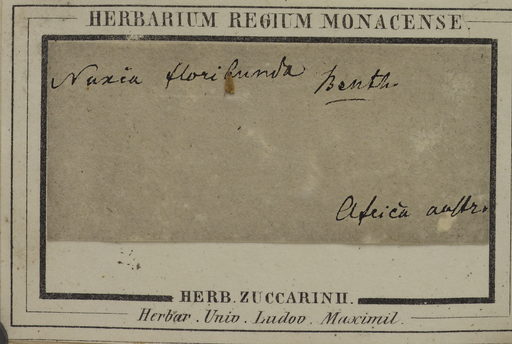 HERBARIUM REGIUM MONACENSE.
Nuxia floribunda Benth.
Africa austr.
HERB. ZUCCARINII.
Herbar. Univ. Ludov. Maximil.